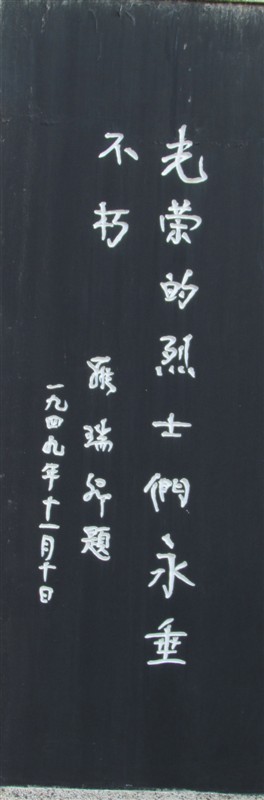 光荣的烈士們永垂
不朽
羅瑞卿題
一九四九年十一月十日